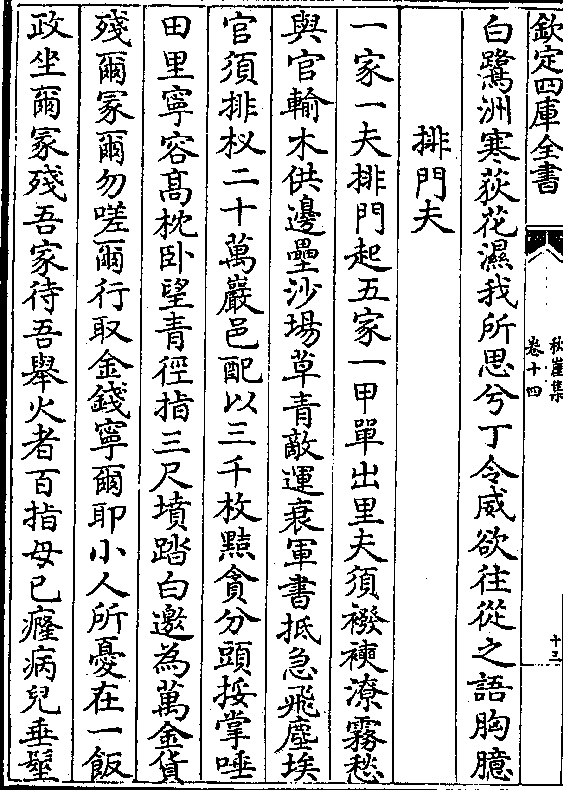 欽定四庫全書
秋崖集
卷十四
十三
白鷺洲寒荻花濕我所思兮丁令威欲往從之語胸臆
排門夫
一家一夫排門起五家一甲單出里夫須襏襫潦霧愁
與官輸木供邊壘沙場草青敵運衰軍書抵急飛塵埃
官須排杈二十萬巖邑配以三千枚黠貪分頭挼掌唾
田里寧容髙枕卧望青徑指三尺墳踏白邀為萬金貨
殘爾冡爾勿嗟爾行取金錢寧爾耶小人所憂在一飯
政坐爾冡殘吾家待吾舉火者百指母已癃病兒垂髽